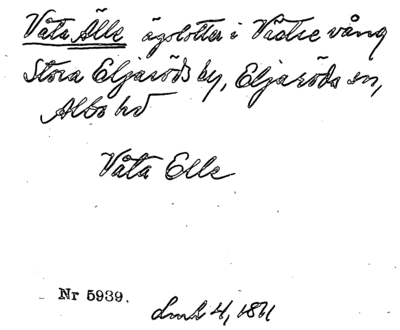 Våta Älle ägolotter i Västre vång
Stora Eljaröds by, Eljaröds sn,
Albo hd
Våta Elle
Nr 5939.
Lmk 4, 1811